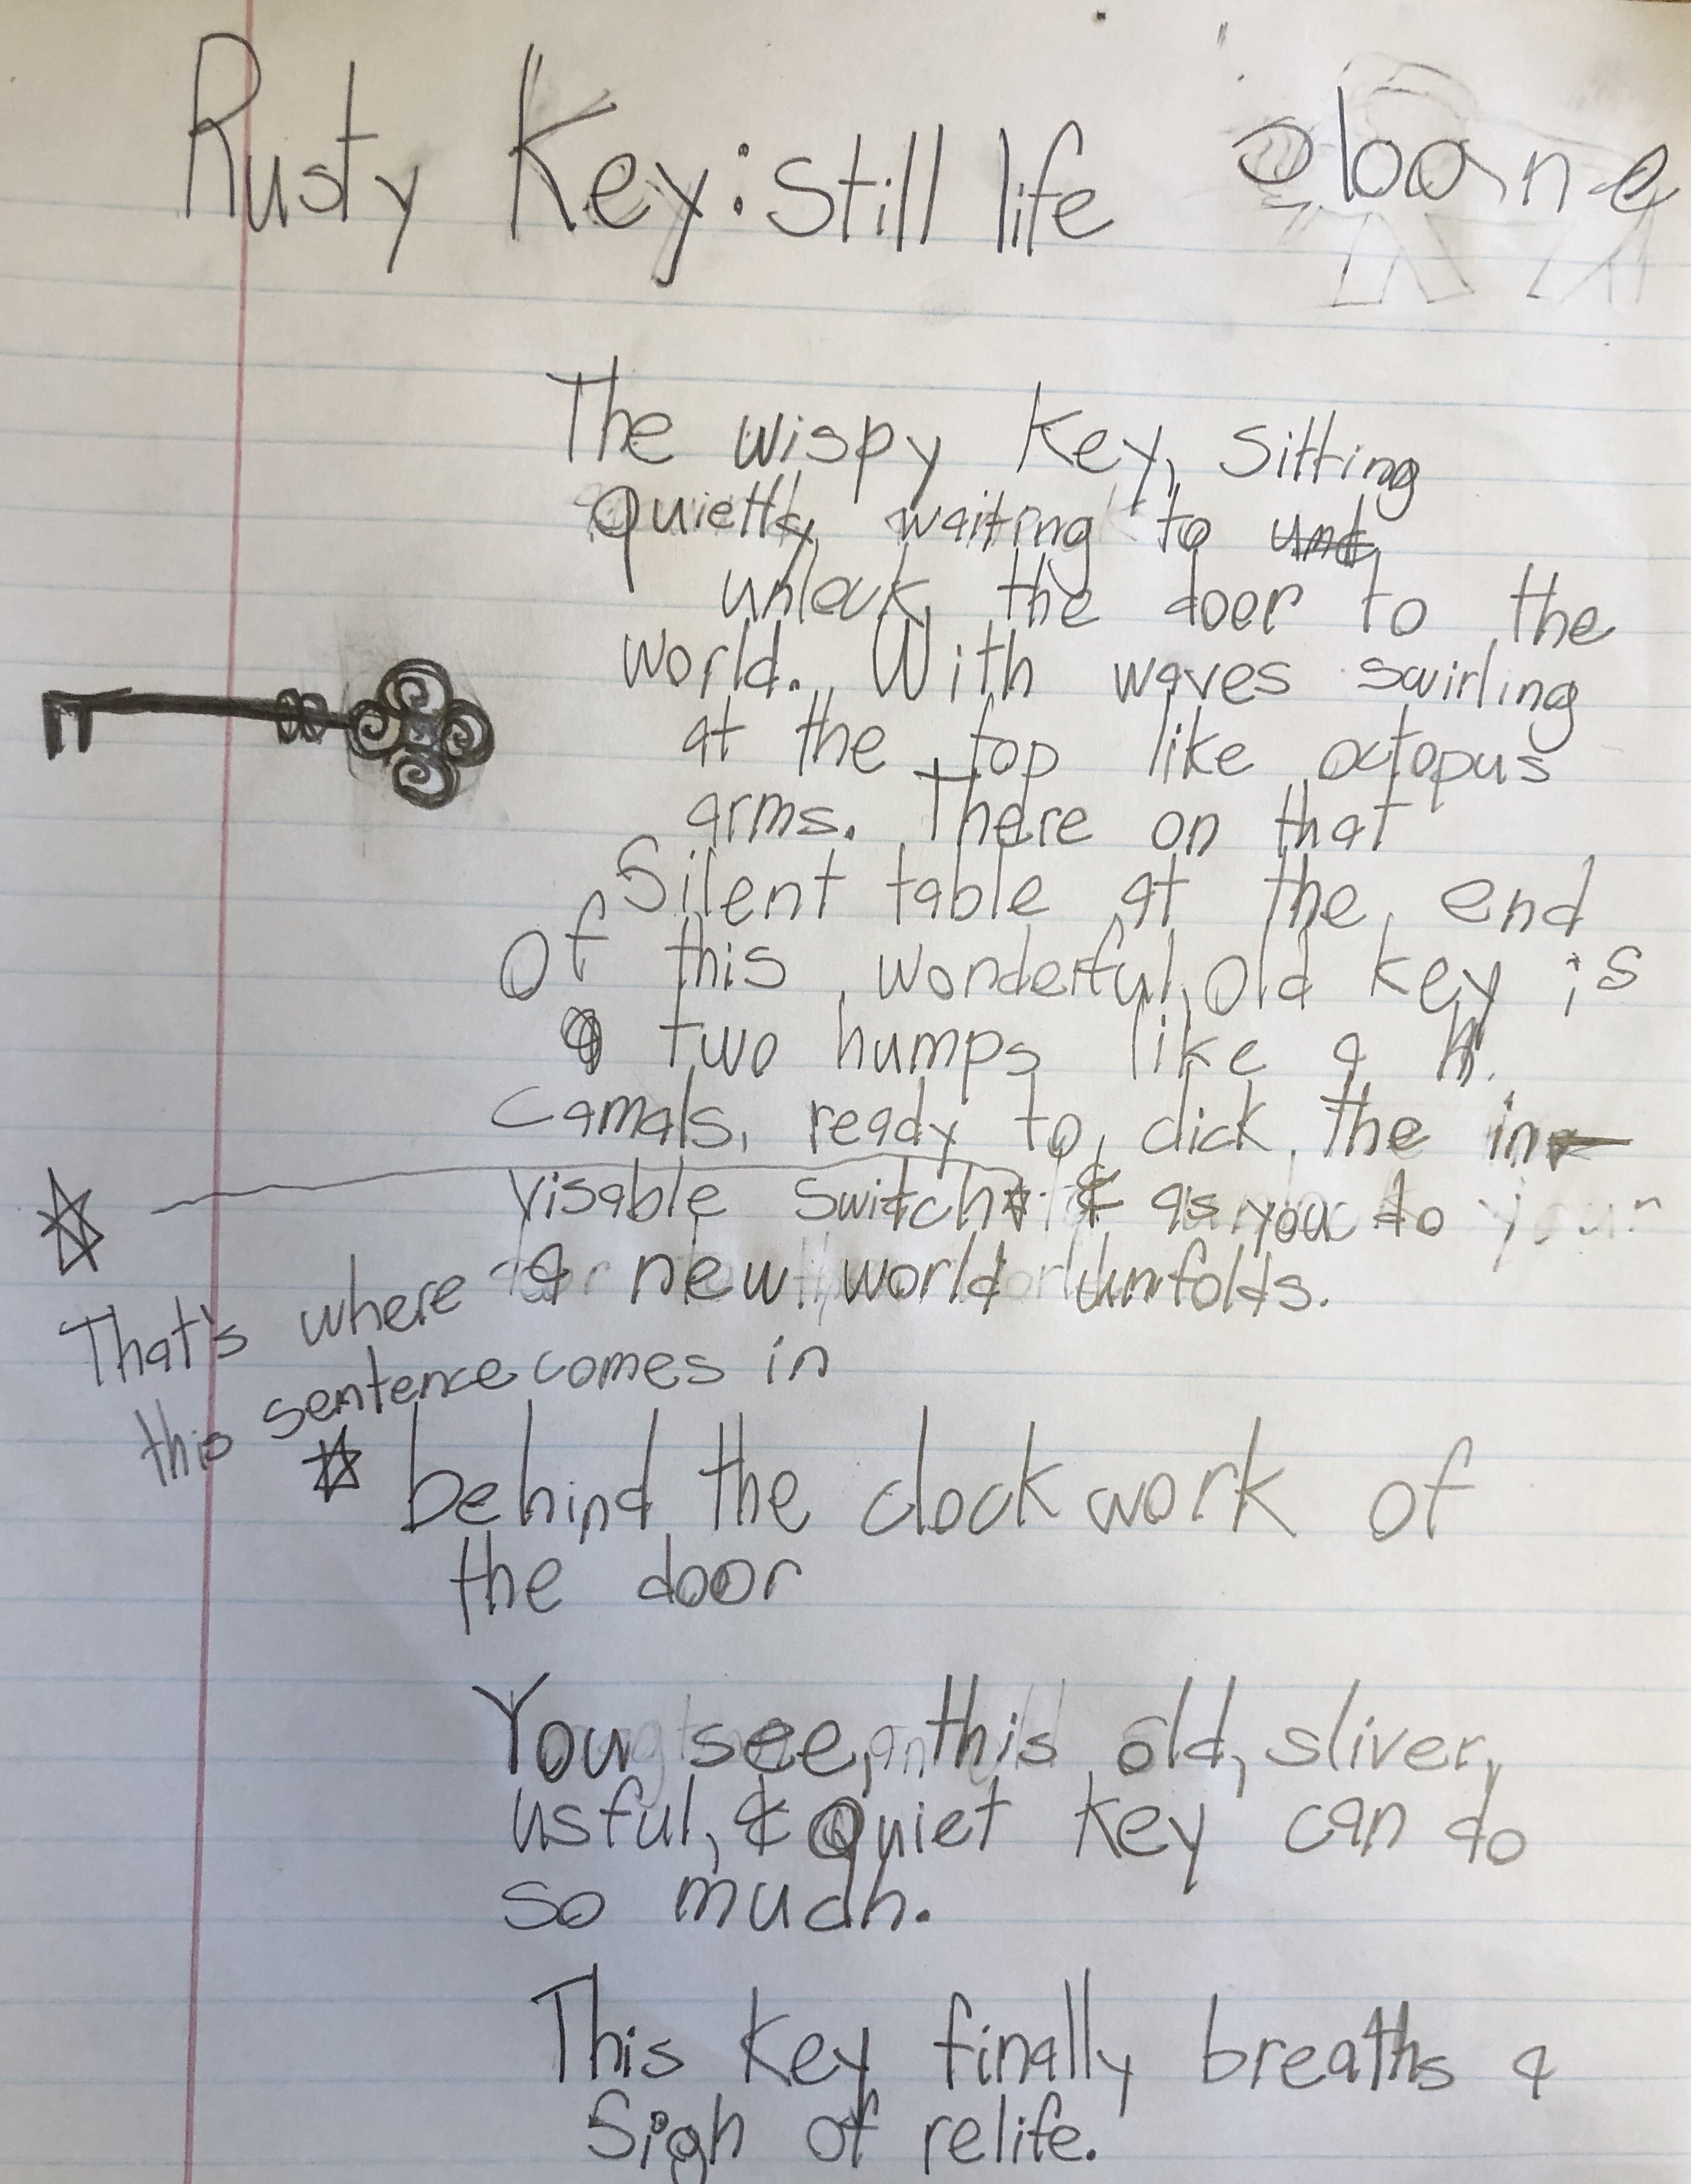 Rusty Key: Still life
The wispy key, sitting
Quietly, waiting to
unlock, the door to the
world. With waves swirling
at the top like octopus
arms. There on that
Silent table at the end
of this wonderful, old key is
two humps like a
camals, ready to, click, the in-
visable switch & as you do
a new world unfolds.
That's where
this sentence comes in
☆ behind the clock work of
the door
You see, this old, sliver,
usful, & Quiet key can do
so much.
This key finally breaths a
Sigh of relife.